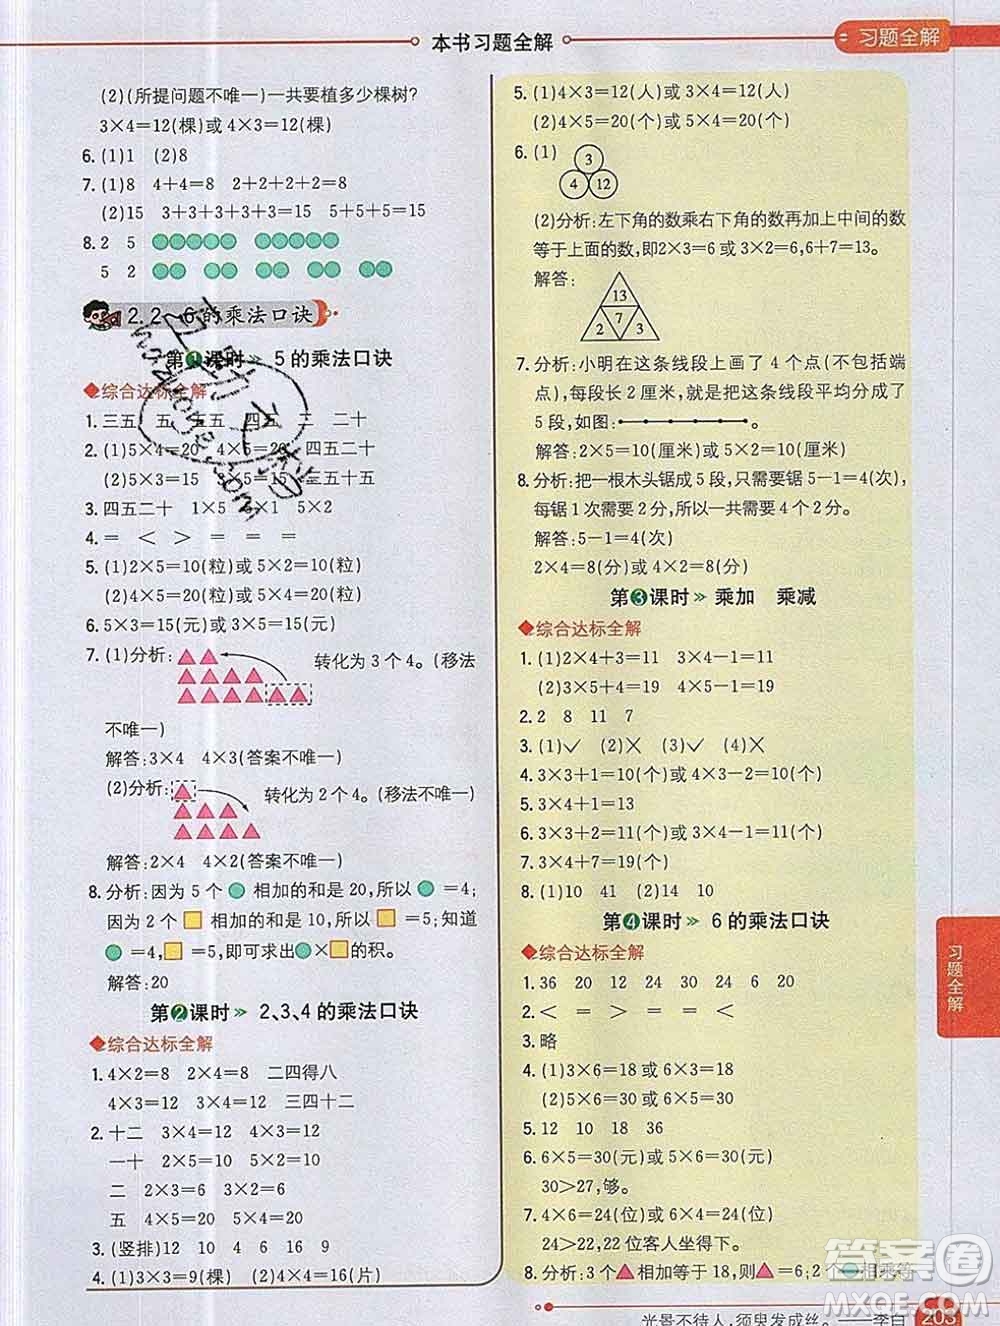 本书习题全解
习题全解
(2)(所提问题不唯一)一共要植多少棵树?
3×4=12(棵)或 4×3=12(棵)
6. (1)1 (2)8
7. (1)8 4+4=8 2+2+2+2=8
(2)15 3+3+3+3+3=15 5+5+5=15
8. 2 5
5 2
2. 2~6的乘法口诀
第1课时 » 5的乘法口诀
◆综合达标全解
1. 三五 五 五五 四五 二 二十
2. (1)5×4=20 4×5=20 四五二十
(2)5×3=15 3×5=15 三五十五
3. 四五二十 1×5 5×1 5×2
4. = < > = = =
5. (1)2×5=10(粒)或 5×2=10(粒)
(2)4×5=20(粒)或 5×4=20(粒)
6. 5×3=15(元)或 3×5=15(元)
7. (1)分析: 转化为 3 个 4。(移法
不唯一)
解答:3×4 4×3(答案不唯一)
(2)分析: 转化为 2 个 4。(移法不唯一)
解答:2×4 4×2(答案不唯一)
8. 分析:因为 5 个 相加的和是 20,所以 =4;
因为 2 个 相加的和是 10,所以 =5;知道
=4, =5,即可求出 × 的积。
解答:20
第2课时 » 2、3、4 的乘法口诀
◆综合达标全解
1. 4×2=8 2×4=8 二四得八
4×3=12 3×4=12 三四十二
2. 十二 3×4=12 4×3=12
一十 2×5=10 5×2=10
二 2×3=6 3×2=6
五 4×5=20 5×4=20
3. (竖排)12 12 10 4 9 16
4. (1)3×3=9(棵) (2)4×4=16(片)
5. (1)4×3=12(人)或 3×4=12(人)
(2)4×5=20(个)或 5×4=20(个)
6. (1)
3
4 12
(2)分析:左下角的数乘右下角的数再加上中间的数
等于上面的数,即2×3=6或 3×2=6,6+7=13。
解答:
13
7
2 3
7. 分析:小明在这条线段上画了 4 个点(不包括端
点),每段长 2 厘米,就是把这条线段平均分成了
5 段,如图:
解答:2×5=10(厘米)或 5×2=10(厘米)
8. 分析:把一根木头锯成 5 段,只需要锯 5-1=4(次),
每锯 1 次需要 2 分,所以一共需要 4 个 2 分。
解答:5-1=4(次)
2×4=8(分)或 4×2=8(分)
第3课时 » 乘加 乘减
◆综合达标全解
1. (1)2×4+3=11 3×4-1=11
(2)3×5+4=19 4×5-1=19
2. 2 8 11 7
3. (1)✓ (2)✕ (3)✓ (4)✕
4. 3×3+1=10(个)或 3×4-2=10(个)
5. 3×4+1=13
6. 3×3+2=11(个)或 3×4-1=11(个)
7. 3×4+7=19(个)
8. (1)10 41 (2)14 10
第4课时 » 6 的乘法口诀
◆综合达标全解
1. 36 20 12 24 30 24 6 20
2. < = > < = =
3. 略
4. (1)3×6=18 或 6×3=18
(2)5×6=30 或 6×5=30
5. 12 10 18 36
6. 6×5=30(元)或 5×6=30(元)
30>27,够。
7. 4×6=24(位)或 6×4=24(位)
24>22,22 位客人坐得下。
8. 分析:3 个 相加等于 18,则 =6;2 个 相乘等
习题全解
光景不待人,须臾发成丝。——李白
203
答案圈
MXQE.COM